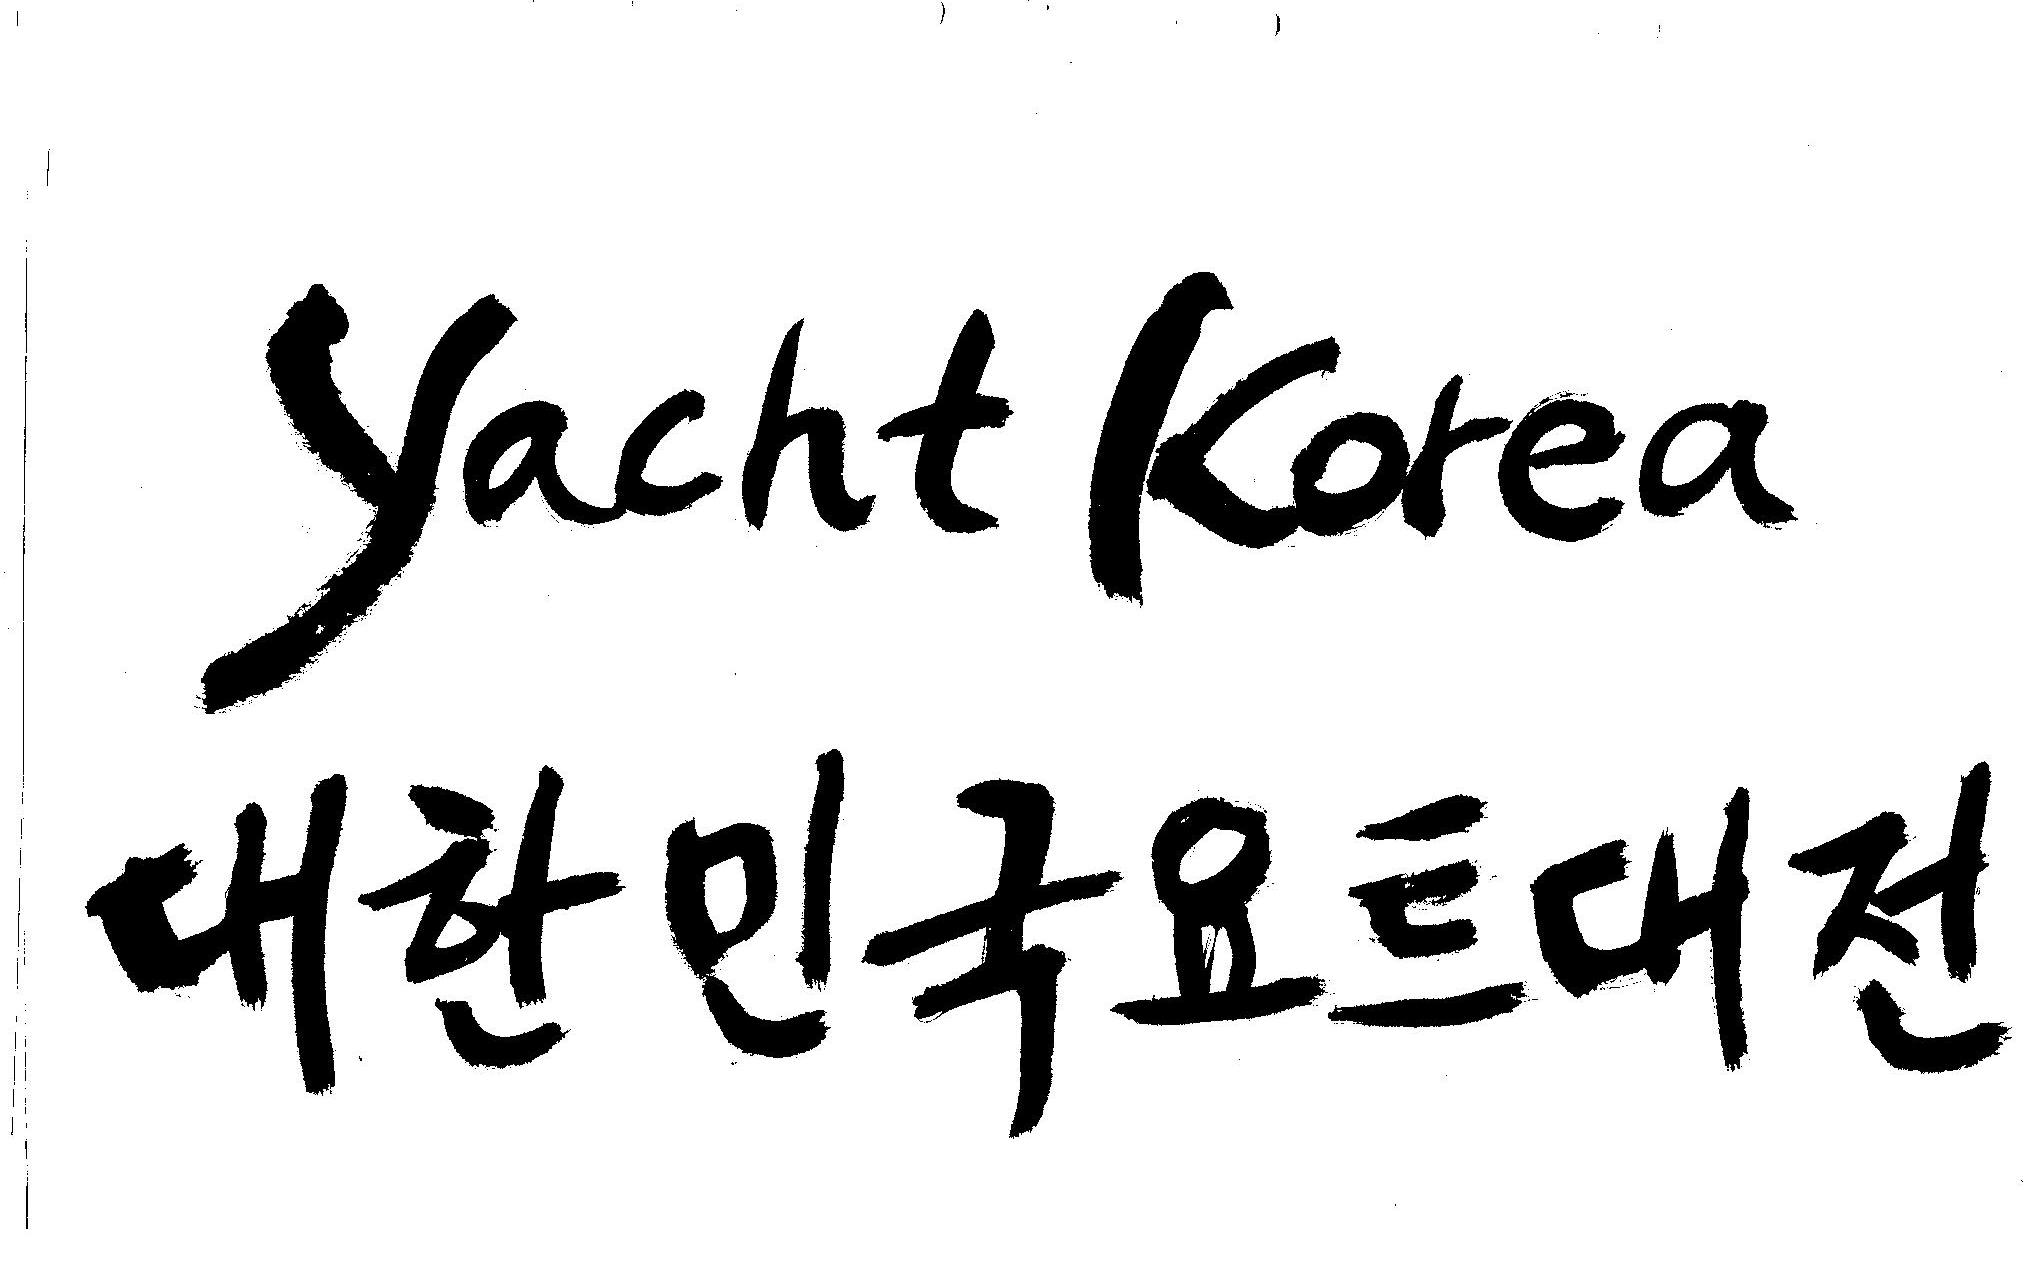 Yacht Korea
대한민국요트대전